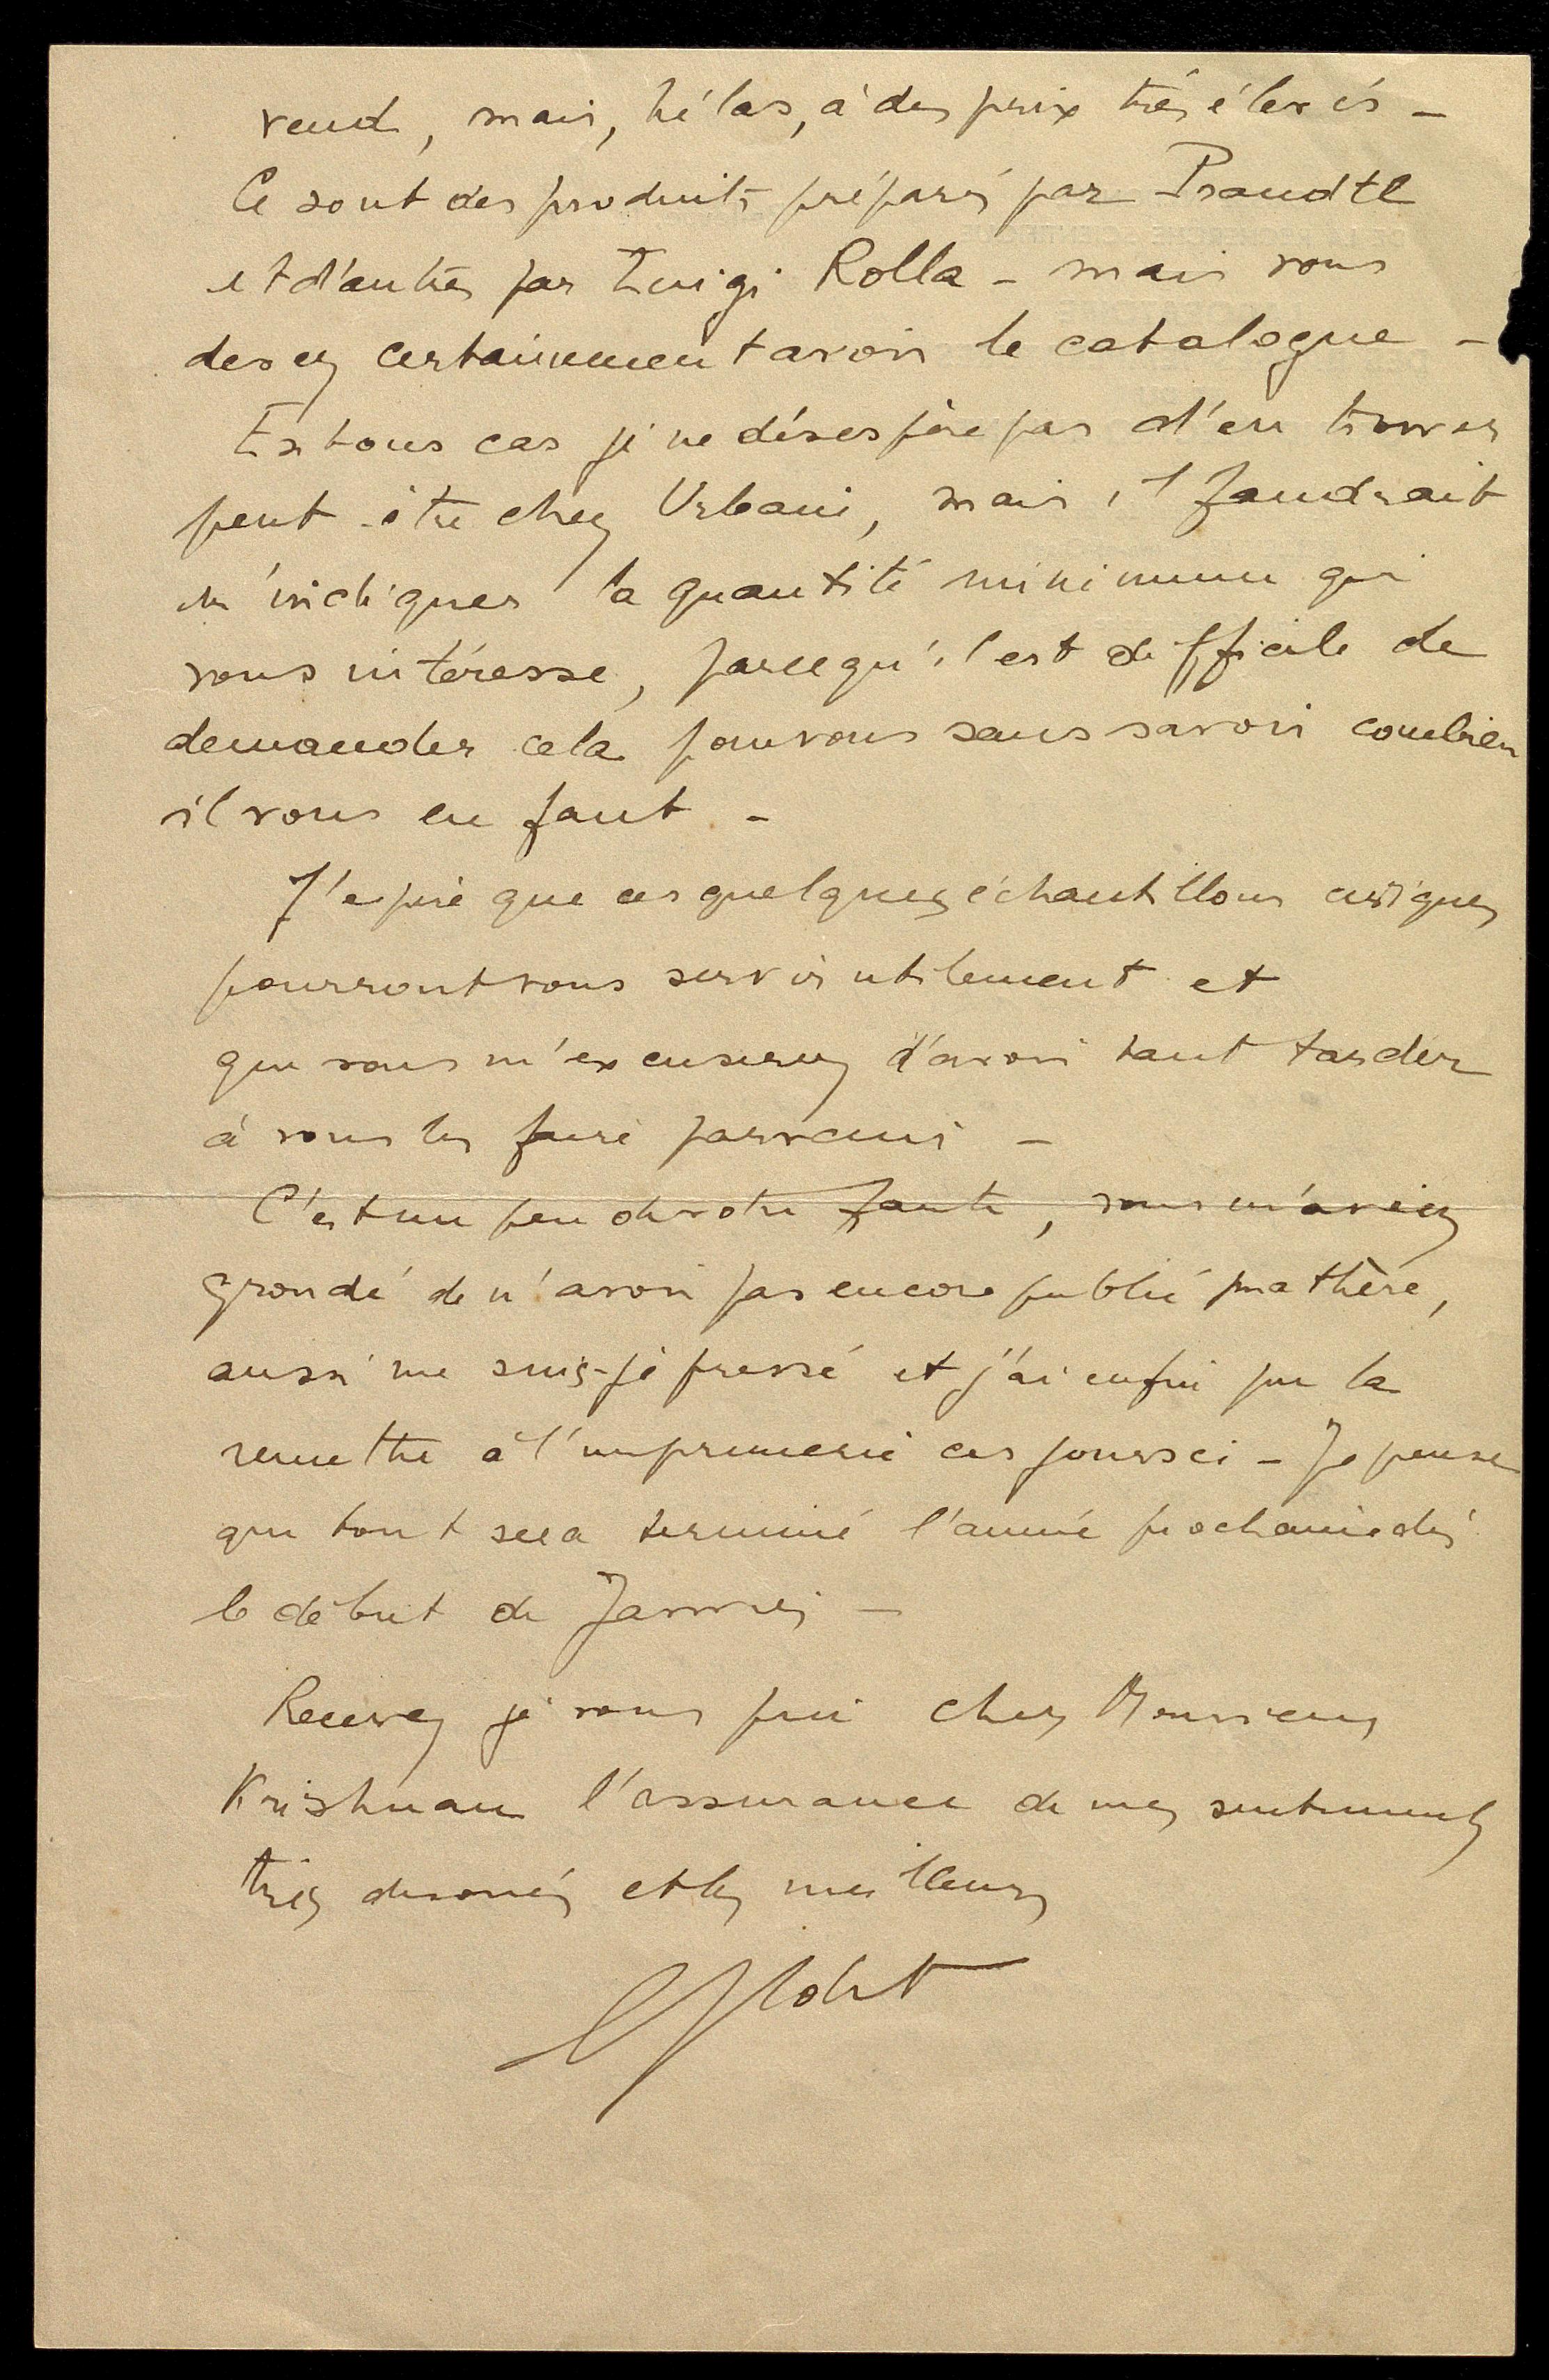 vend, mais, hélas, à des prix très élevés -
Ce sont des produits préparés par Prandtl
et d'autres par Luigi Rolla - mais vous
devez certainement avoir le catalogue -
En tous cas je ne désespère pas d'en trouver
peut-être chez Urbain, mais il faudrait
m'indiquer la quantité minimum qui
vous intéresse, parcequ'il est difficile de
demander cela pour vous sans savoir combien
il vous en faut -
J'espère que ces quelques échantillons cériques
pourront vous servir utilement et
que vous m'excuserez d'avoir tant tarder
à vous les faire parvenir -
C'est un peu de votre faute, vous m'aviez
grondé de n'avoir pas encore publié ma thèse,
aussi me suis-je pressé et j'ai enfin pu la
remettre à l'imprimerie ces jours ci - Je pense
que tout sera terminé l'année prochaine dès
le début de Janvier -
Recevez je vous prie cher Monsieur
Krishnan l'assurance de mes sentiments
très dévoués et les meilleurs